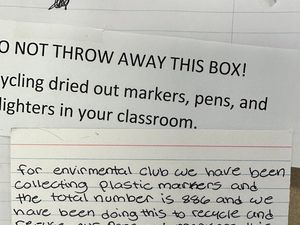 O NOT THROW AWAY THIS BOX!
ycling dried out markers, pens, and
lighters in your classroom.
for envirmental club we have been
collecting plastic markers and
the total number is 886 and we
have been doing this to recycle and